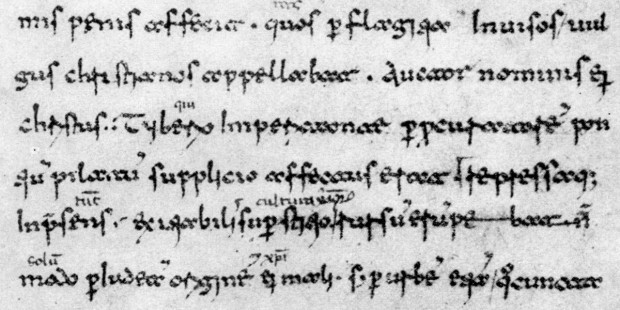 mis penis affecit . quos p flagitia Invisos / uul
gus christianos appellabat . Auctor nominis ei
christus . Tyberio Imperitante p procuratorē pon
tiū pilatū supplicio affectus erat / repressaq;
Inp̄sens . exitiabilis supstitio rursū erūpe bat n̄
solū
modo p Iudeā origine ei mali . s . p urbē etiā / quo cuncta